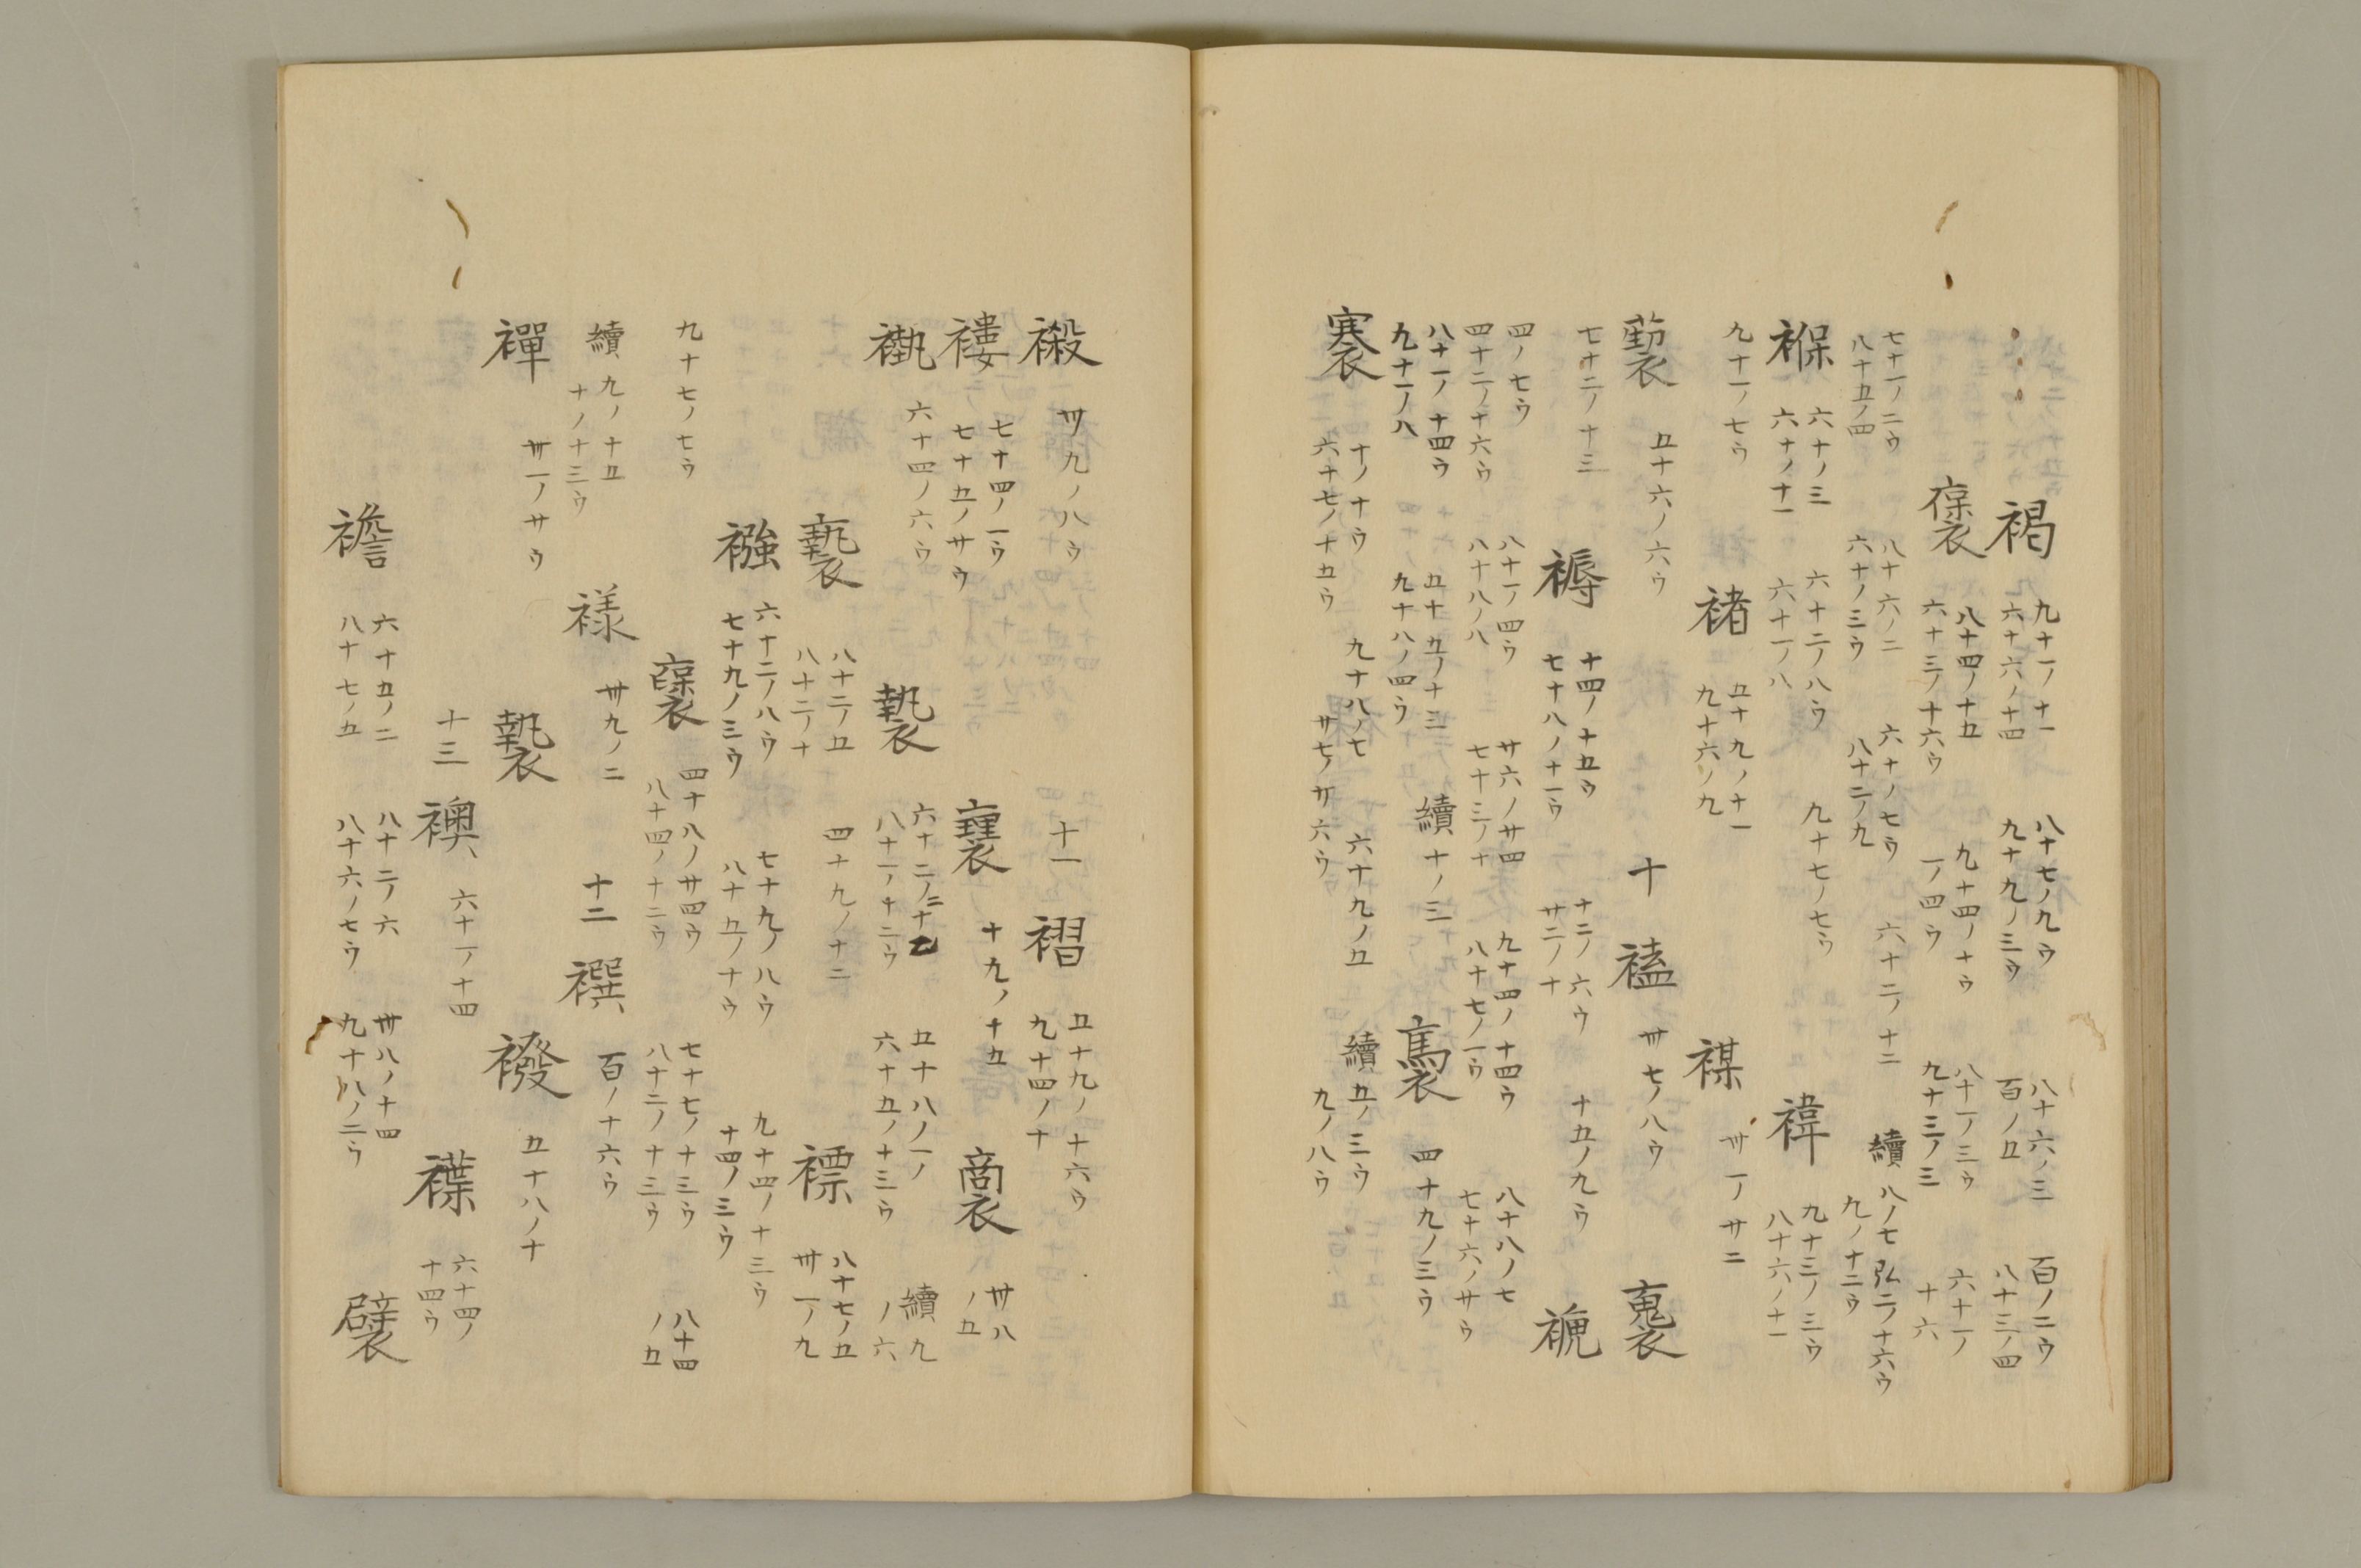 褐 九十一ノ十一 六十六ノ十四 八十七ノ九ウ 九十九ノ三ウ 八十六ノ三 百ノ五 百ノ二ウ 八十三ノ四
八十四ノ十五 六十三ノ十六ウ 九十四ノ十ウ 一ノ四ウ 八十一ノ三ウ 九十三ノ三 六十一ノ十六
七十一ノ二ウ 八十五ノ四 八十六ノ二 六十ノ三ウ 六十ノ七ウ 八十二ノ九 六十二ノ十二 續 八ノ七 弘二ノ十六ウ 九ノ十二ウ
褓 六十ノ三 六十ノ十一 六十二ノ八ウ 六十一ノ八 九十七ノ七ウ 褘 九十三ノ三ウ 八十六ノ十一
九十一ノ七ウ 褚 五十九ノ十一 九十六ノ九 禖 卅一ノ廿二
五十六ノ六ウ 十 榼 卅七ノ八ウ
七十二ノ十三 褥 十四ノ十五ウ 七十八ノ十一ウ 十二ノ六ウ 廿二ノ十 十五ノ九ウ 褦
四ノ七ウ 四十二ノ十六ウ 八十一ノ四ウ 八十八ノ八 廿六ノ廿四 七十三ノ十 九十四ノ十四ウ 八十七ノ一ウ 八十八ノ七 七十六ノ廿ウ
八十一ノ十四ウ 九十一ノ八 五十五ノ十三 九十八ノ四ウ 續 十ノ三 四十九ノ三ウ
褰 十ノ十ウ 六十七ノ十五ウ 九十八ノ七 廿七ノ廿六ウ 六十九ノ五 續 五ノ三ウ 九ノ八ウ
卅九ノ八ウ 十一 褶 五十九ノ十六ウ 九十四ノ十
褸 七十四ノ一ウ 七十五ノ廿ウ 十九ノ十五 卅八ノ五
六十四ノ六ウ 褺 六十二ノ二十乙 八十一ノ十二ウ 五十八ノ一ノ 六十五ノ十三ウ 續 九ノ六
褻 八十二ノ五 八十二ノ十 四十九ノ十二 褾 八十七ノ五 卅一ノ九
襁 六十二ノ八ウ 七十九ノ三ウ 七十九ノ八ウ 八十五ノ十ウ 九十四ノ十三ウ 十四ノ三ウ
九十七ノ七ウ 襃 四十八ノ廿四ウ 八十四ノ十二ウ 七十七ノ十三ウ 八十二ノ十三ウ 八十四ノ五
續 九ノ十五 十ノ十三ウ 卅九ノ二 十二 襈 百ノ十六ウ
襌 卅一ノ廿ウ 褺 襏 五十八ノ十
十三 襖 六十一ノ十四 襍 六十四ノ十四ウ
襜 六十五ノ二 八十七ノ五 八十二ノ六 八十六ノ七ウ 卅八ノ十四 九十八ノ二ウ 襞